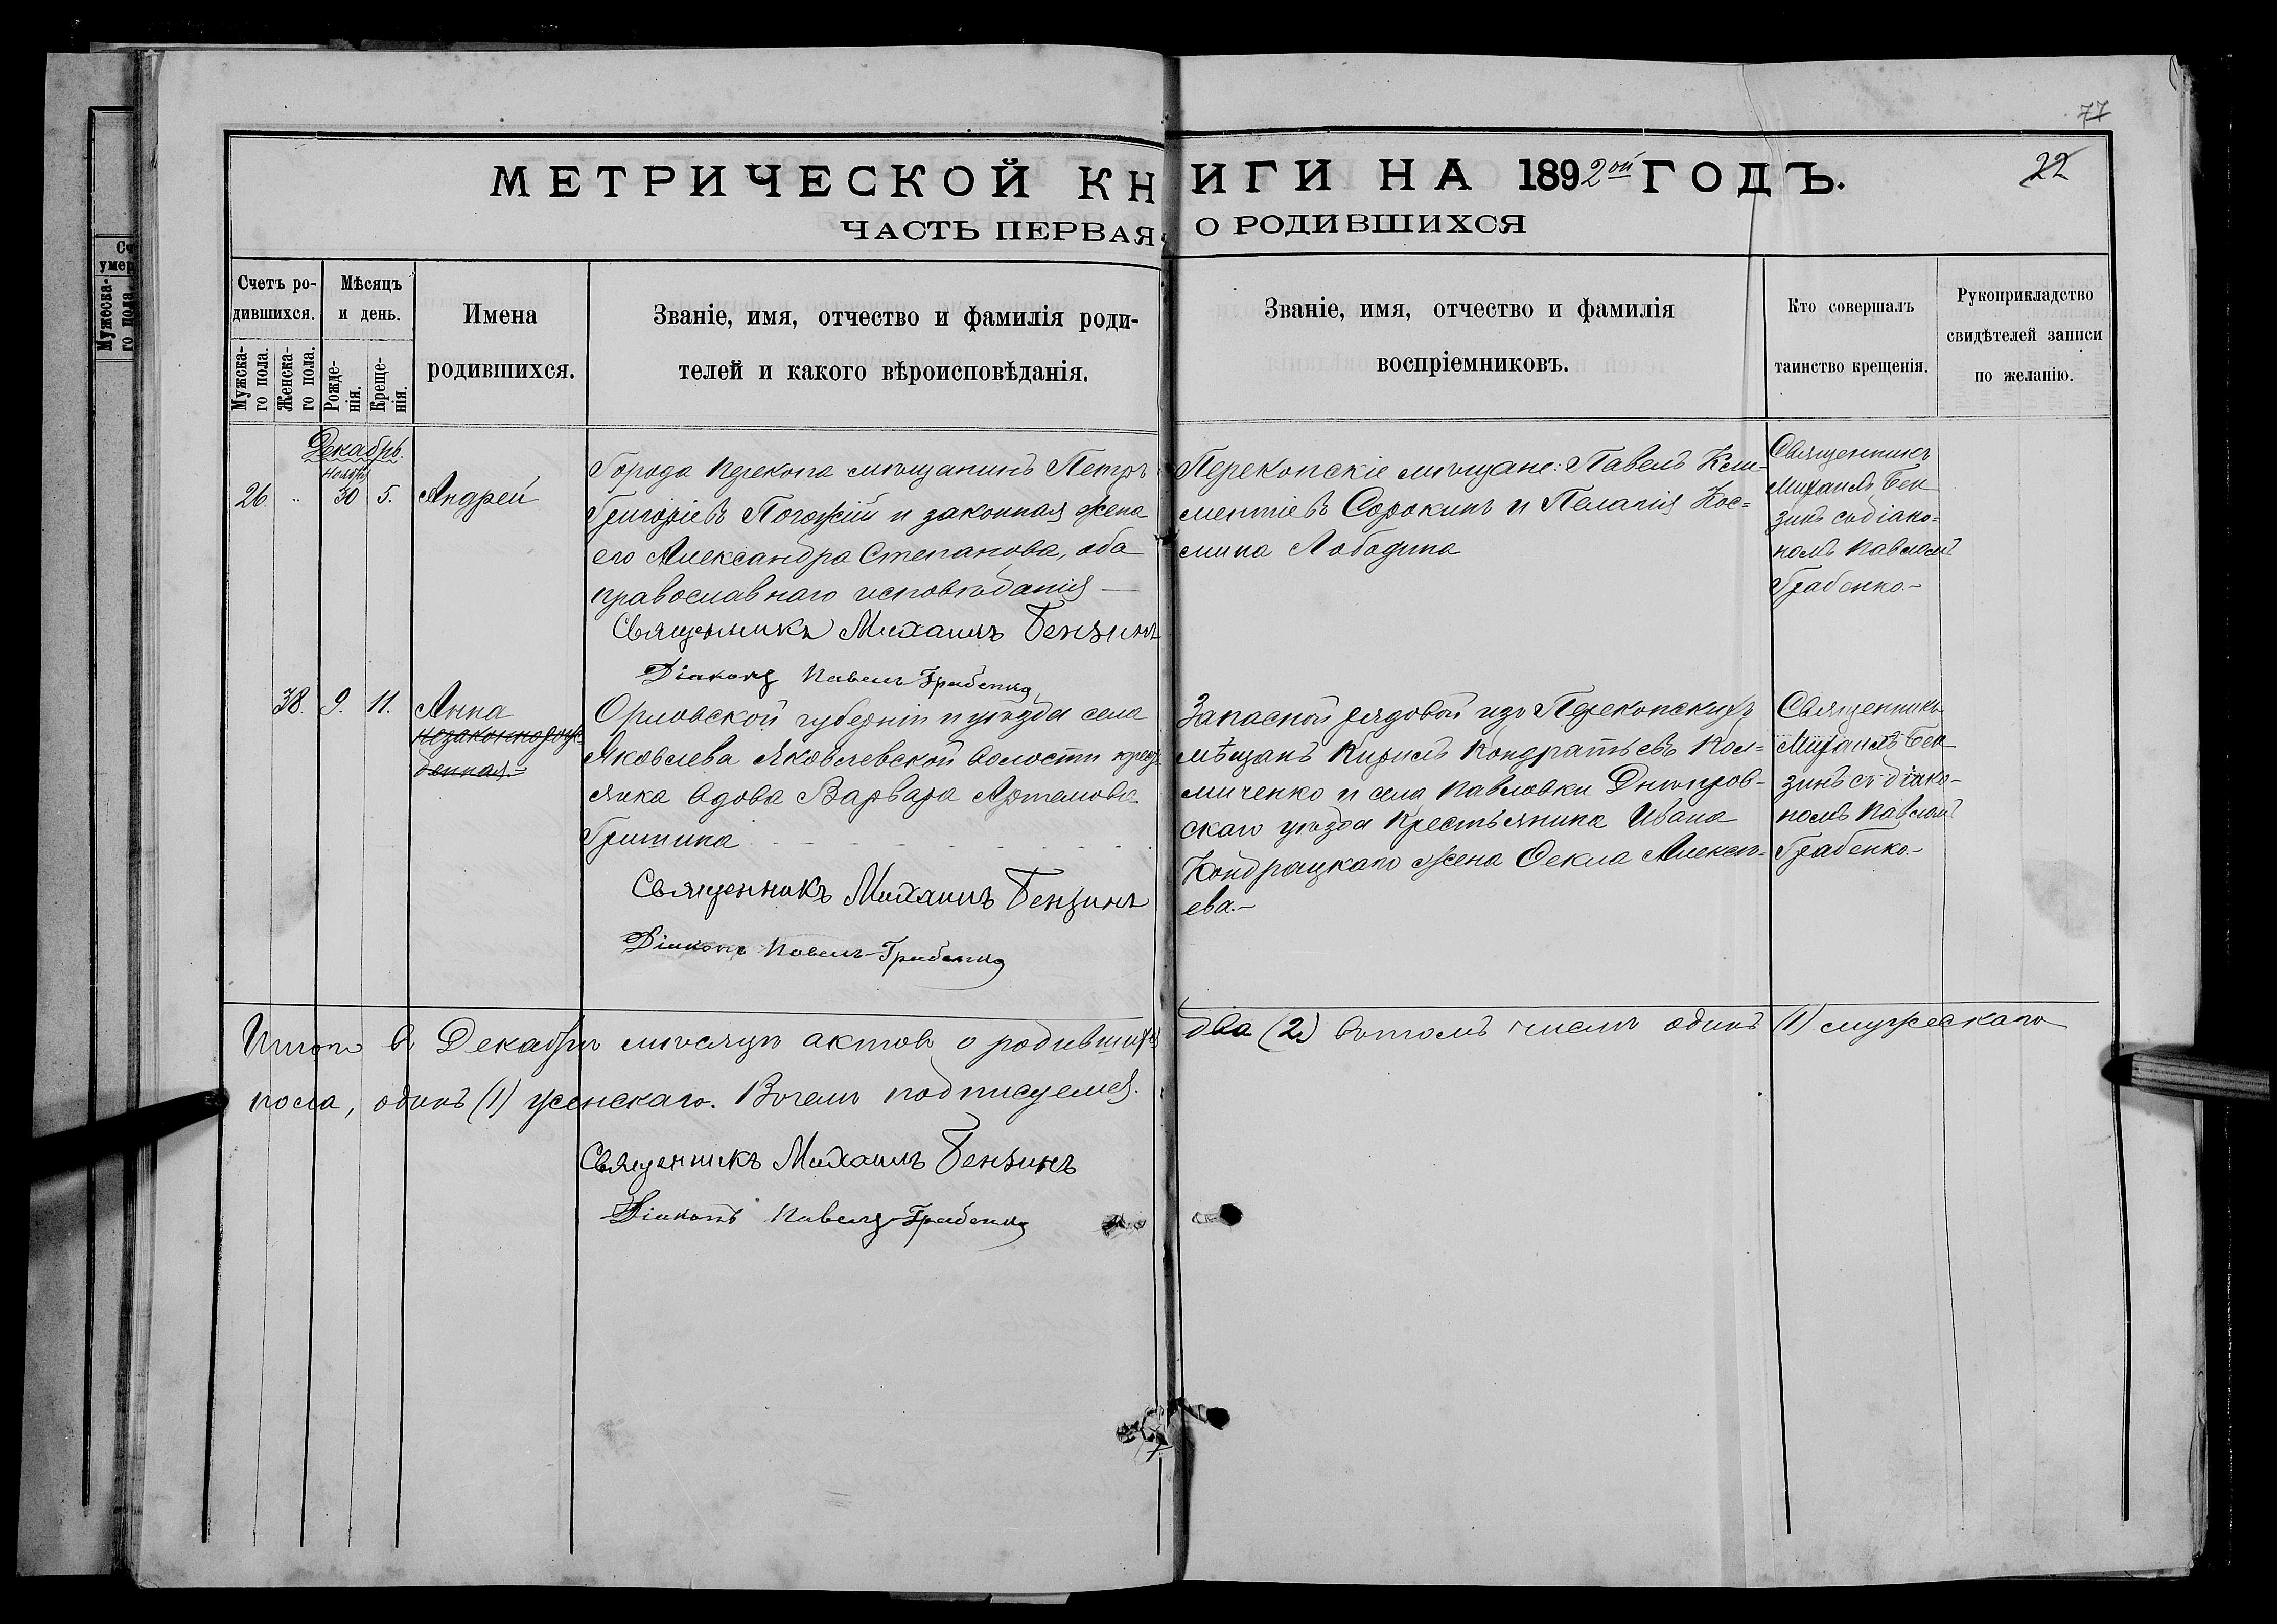 77
МЕТРИЧЕСКОЙ КНИГИ НА 1892ой ГОДЪ.
22
ЧАСТЬ ПЕРВАЯ, О РОДИВШИХСЯ
Счетъ ро-
дившихся.
Мужска-
го пола.
Женска-
го пола.
Мѣсяцъ
и день.
Рожде-
нія.
Креще-
нія.
Имена
родившихся.
Званіе, имя, отчество и фамилія роди-
телей и какого вѣроисповѣданія.
Званіе, имя, отчество и фамилія
воспріемниковъ.
Кто совершалъ
таинство крещенія.
Рукоприкладство
свидѣтелей записи
по желанію.
Декабрь.
Ноября
26. " 30 5. Андрей
Города Перекопа мѣщанинъ Петръ
Григоріевъ Погожій и законная жена
его Александра Степанова, оба
православнаго исповѣданія —
Священникъ Михаилъ Бензинъ
Діаконъ Павелъ Грабенко
Перекопскіе мѣщане: Павелъ Кли-
ментіевъ Сорокинъ и Пелагія Кос=
мина Лободина
Священникъ
Михаилъ Бен
зинъ съ діако=
номъ Павломъ
Грабенко.-
38. 9. 11. Анна
незаконнорож-
денная=
Орловской губерніи и уѣзда села
Яковлева Яковлевской волости крест
янка вдова Варвара Артемова
Гришина
Священникъ Михаилъ Бензинъ
Діаконъ Павелъ Грабенко
Запасной рядовой изъ Перекопскихъ
мѣщанъ Кирилъ Кондратьевъ Кол=
миченко и села Павловки Днѣпров-
скаго уѣзда крестьянина Ивана
Кондрацкаго жена Ѳекла Алексѣ-
ева.-
Священникъ
Михаилъ Бен
зинъ съ діако-
номъ Павломъ
Грабенко.-
Итого въ Декабрѣ мѣсяцѣ актовъ о родившихся два (2) въ томъ числѣ одинъ (1) мужескаго
пола, одинъ (1) женскаго. Въ чемъ подписуемся.
Священникъ Михаилъ Бензинъ
Діаконъ Павелъ Грабенко
Сч
умер
Мужеска-
го пола.